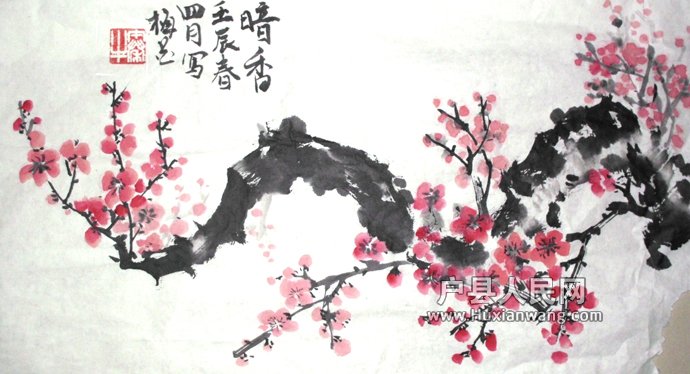 暗香
壬辰春
四月写
户县人民网
www.Huxianwang.com